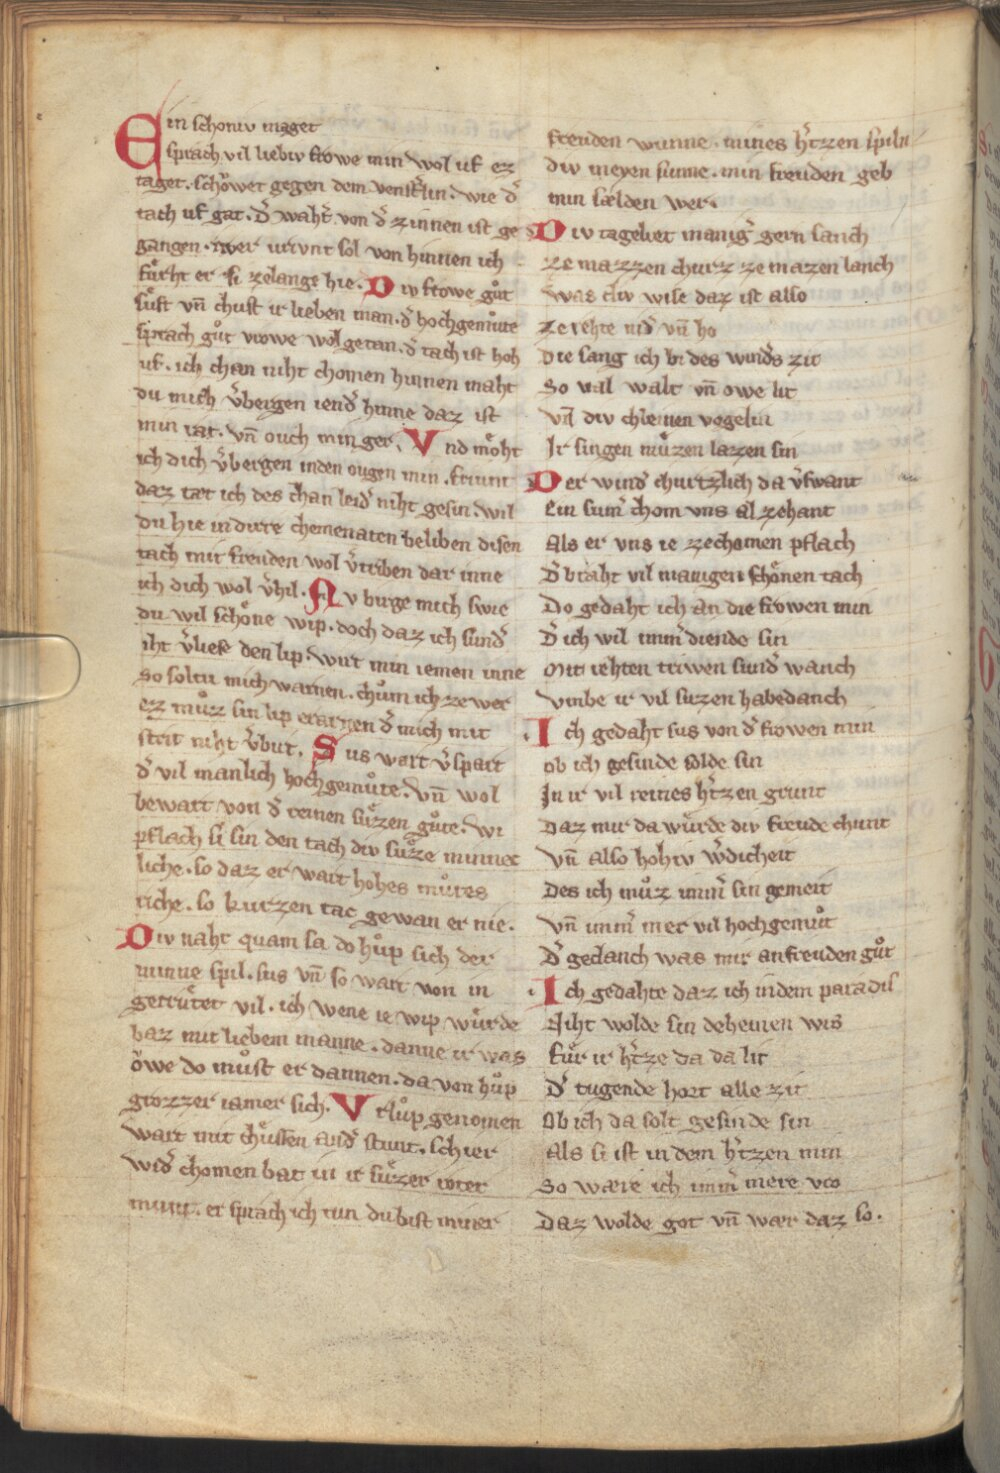 Ein schoniv maget
sprach vil liebiv frowe min wol uf ez
taget. schowet gegen dem venstˀlin. wie dˀ
tach uf gat. dˀ wahtˀ von dˀ zinnen ist ge
gangen. iwer urivnt sol von hinnen ich
fuͤrht er si zelange hie. Div frowe guͦt
suͤft vn̄ chust ir lieben man. dˀ hochgemuͦte
sprach guͦt vrowe wolgetan. dˀ tach ist hoh
uf. ich chan niht chomen hinnen maht
du mich vˀbergen iendˀ hinne daz ist
min rat. vn̄ ouch min ger. Vnd moͤht
ich dich vˀbergen inden ougen min. friunt
daz tæt ich des chan leidˀ niht gesin. wil
du hie in dirre chemenaten beliben disen
tach mit freuden wol vˀtriben dar inne
ich dich wol vˀhil. Nv birge mich swie
du wil schoͤne wip. doch daz ich sundˀ
iht vˀliese den lip. wirt min iemen inne
so soltu mich warnen. chum ich ze wer
ez muͦz sin lip erarnen dˀ mich mit
strit niht vˀbirt. Sus wart vˀspart
dˀ vil manlich hochgemuͦte. vn̄ wol
bewart von dˀ reinen suͤzen guͦte. wi
pflach si sin den tach div suͤze minnec
liche. so daz er wart hohes muͦtes
riche. so kurzen tac gewan er nie.
Div naht quam sa do huͦp sich der
minne spil. sus vn̄ so wart von in
getruͤtet vil. ich wene ie wip wuͤrde
baz mit liebem manne. danne ir was
owe do muͦst er dannen. da von huͦp
grozzer iamer sich. Vrluͦp genomen
wart mit chuͤssen andˀ stunt. schier
widˀ chomen bat in ir suͤzer roter
munt. er sprach ich tun du bist miner
freuden wunne. mines hˀtzen spiln
div meyen sunne. min freuden geb
min sælden wer.
Div tageliet manigˀ gern sanch
ze mazzen churz ze mazen lanch
was div wise daz ist also
ze rehte nidˀ vn̄ ho
Die sang ich bi des windˀs zit
So val walt vn̄ owe lit
Vn̄ div chleinen vogelin
Ir singen muͤzen lazzen sin
Der windˀ churtzlich da vˀswant
Ein sumˀ chom vns al zehant
Als er vns ie ze chomen pflach
Dˀ braht vil manigen schoͤnen tach
Do gedaht ich an die frowen min
Dˀ ich wil immˀ diende sin
Mit rehten triwen sundˀ wanch
Vmbe ir vil suzen habedanch
Ich gedaht sus von dˀ frowen min
ob ich gesinde solde sin
In ir vil reines hˀtzen grunt
Daz mir da wuͤrde div freude chunt
Vn̄ also hohiv wˀdicheit
Des ich muͦz immˀ sin gemeit
Vn̄ immˀ mer vil hochgemuͦt
Dˀ gedanch was mir an freuden guͦt
Ich gedahte daz ich in dem paradis
Niht wolde sin deheinen wis
fuͤr ir hˀtze da da lit
Dˀ tugende hort alle zit
Ob ich da solt gesinde sin
Als si ist in dem hˀtzen min
So wære ich immˀ mere vro
Daz wolde got vn̄ wær daz so.